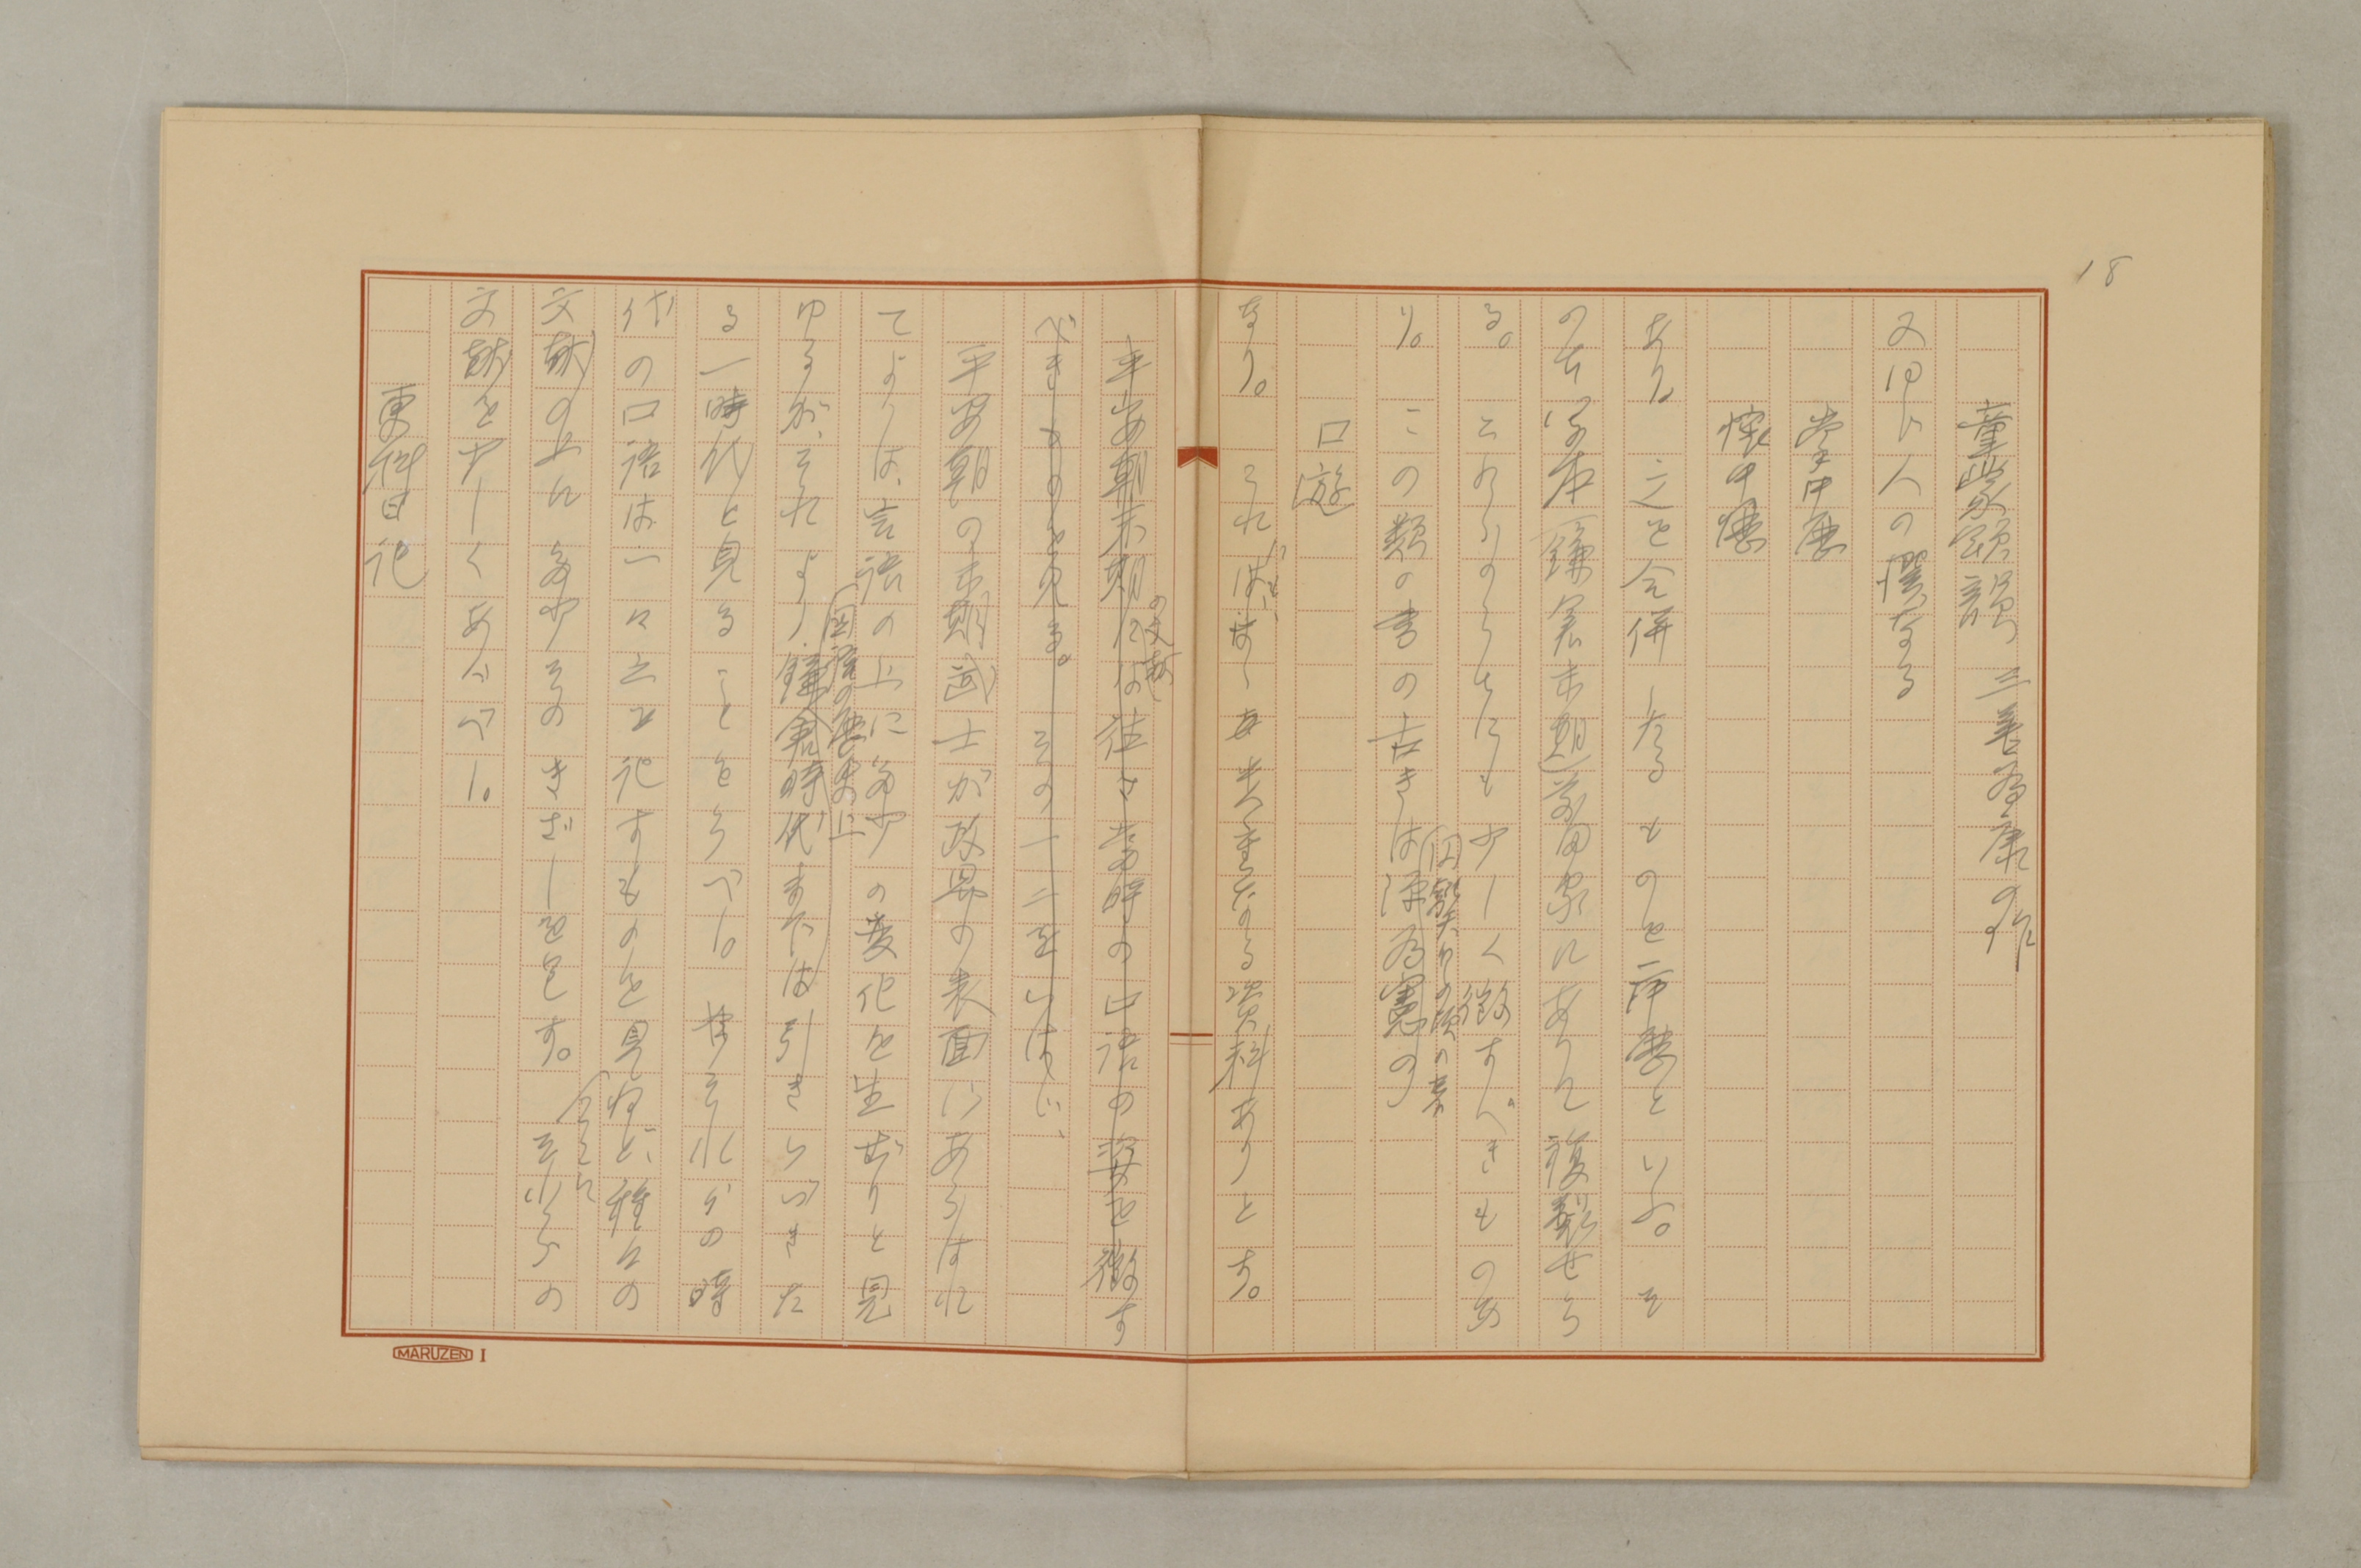 18
童蒙頌韻 三善為康の作
又同じ人の撰なる
掌中歴
懐中歴
あり。之を合併したるものを二中歴といふ。そ
の古写本(鎌倉末期)前田家にありて複製せら
る。これらのうちにも少しく徴すべきものあ
り。この類の書の古きは源為憲の
(円融天皇の頃の書
口遊
なり。これには 資料ありとす。
平安朝末期には往々当時の口語の姿を徴す
の文献
べきものを見る。その一二をいはゞ、
平安朝の末期武士が政界の表面にあらはれ
てよりは、言語の上に多少の変化を生ぜりと見
ゆるが、それより鎌倉時代までは引きつづきた
(国語の歴史上
る一時代と見ることをうべし。 それらの時
代の口語は一々之を記すものを見ねど、種々の
文献の上に多少そのきざしを呈す。それらの
(今ここに
文献を少しくあぐべし。
更科日記
MARUZEN I